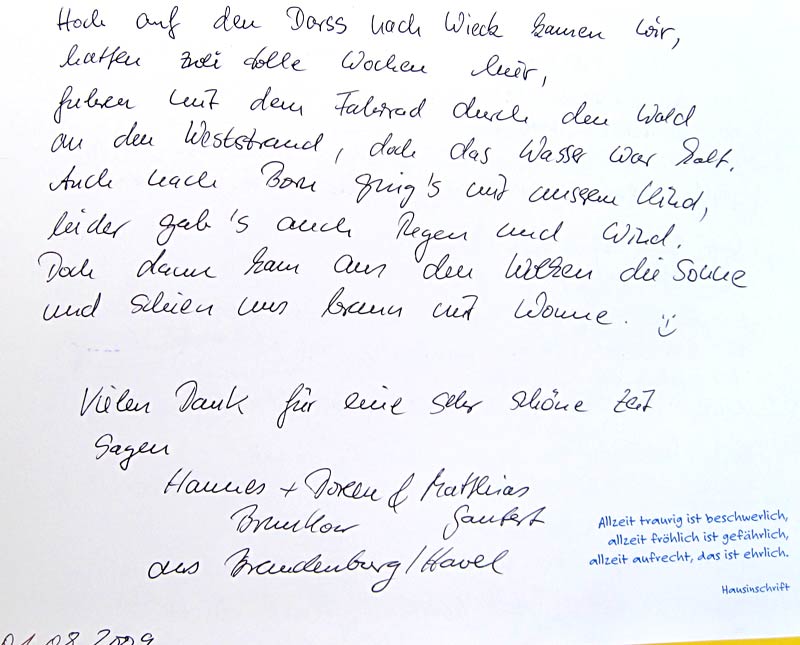 Hoch auf den Darss nach Wieck kamen wir,
hatten zwei tolle Wochen hier,
fuhren mit dem Fahrrad durch den Wald
an den Weststrand, doch das Wasser war kalt.
Auch nach Born ging's mit unserem Kind,
leider gab's auch Regen und Wind.
Doch dann kam aus den Wolken die Sonne
und schien uns braun mit Wonne.
Vielen Dank für eine sehr schöne Zeit
sagen
Hannes + Doreen & Matthias
aus Brandenburg/Havel
Allzeit traurig ist beschwerlich,
allzeit fröhlich ist gefährlich,
allzeit aufrecht, das ist ehrlich.
Hausinschrift
01.08.2009